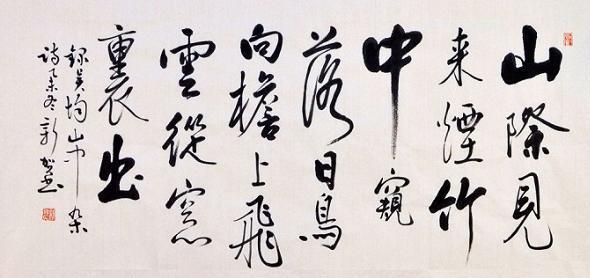 山際見
来煙竹
中窺
落日鳥
向檐上飛
雲從窓
裏出
録吴均山中杂
詩